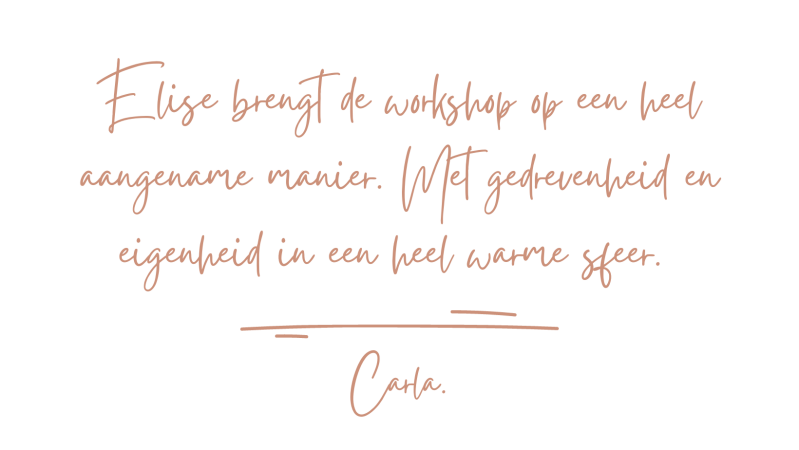 Elise brengt de workshop op een heel
aangename manier. Met gedrevenheid en
eigenheid in een heel warme sfeer.
Carla.